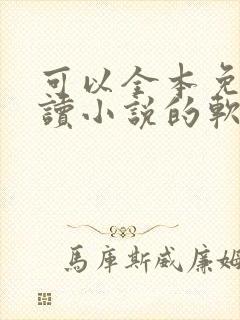 可以全本免
讀小說的軟
馬庫斯威廉姆